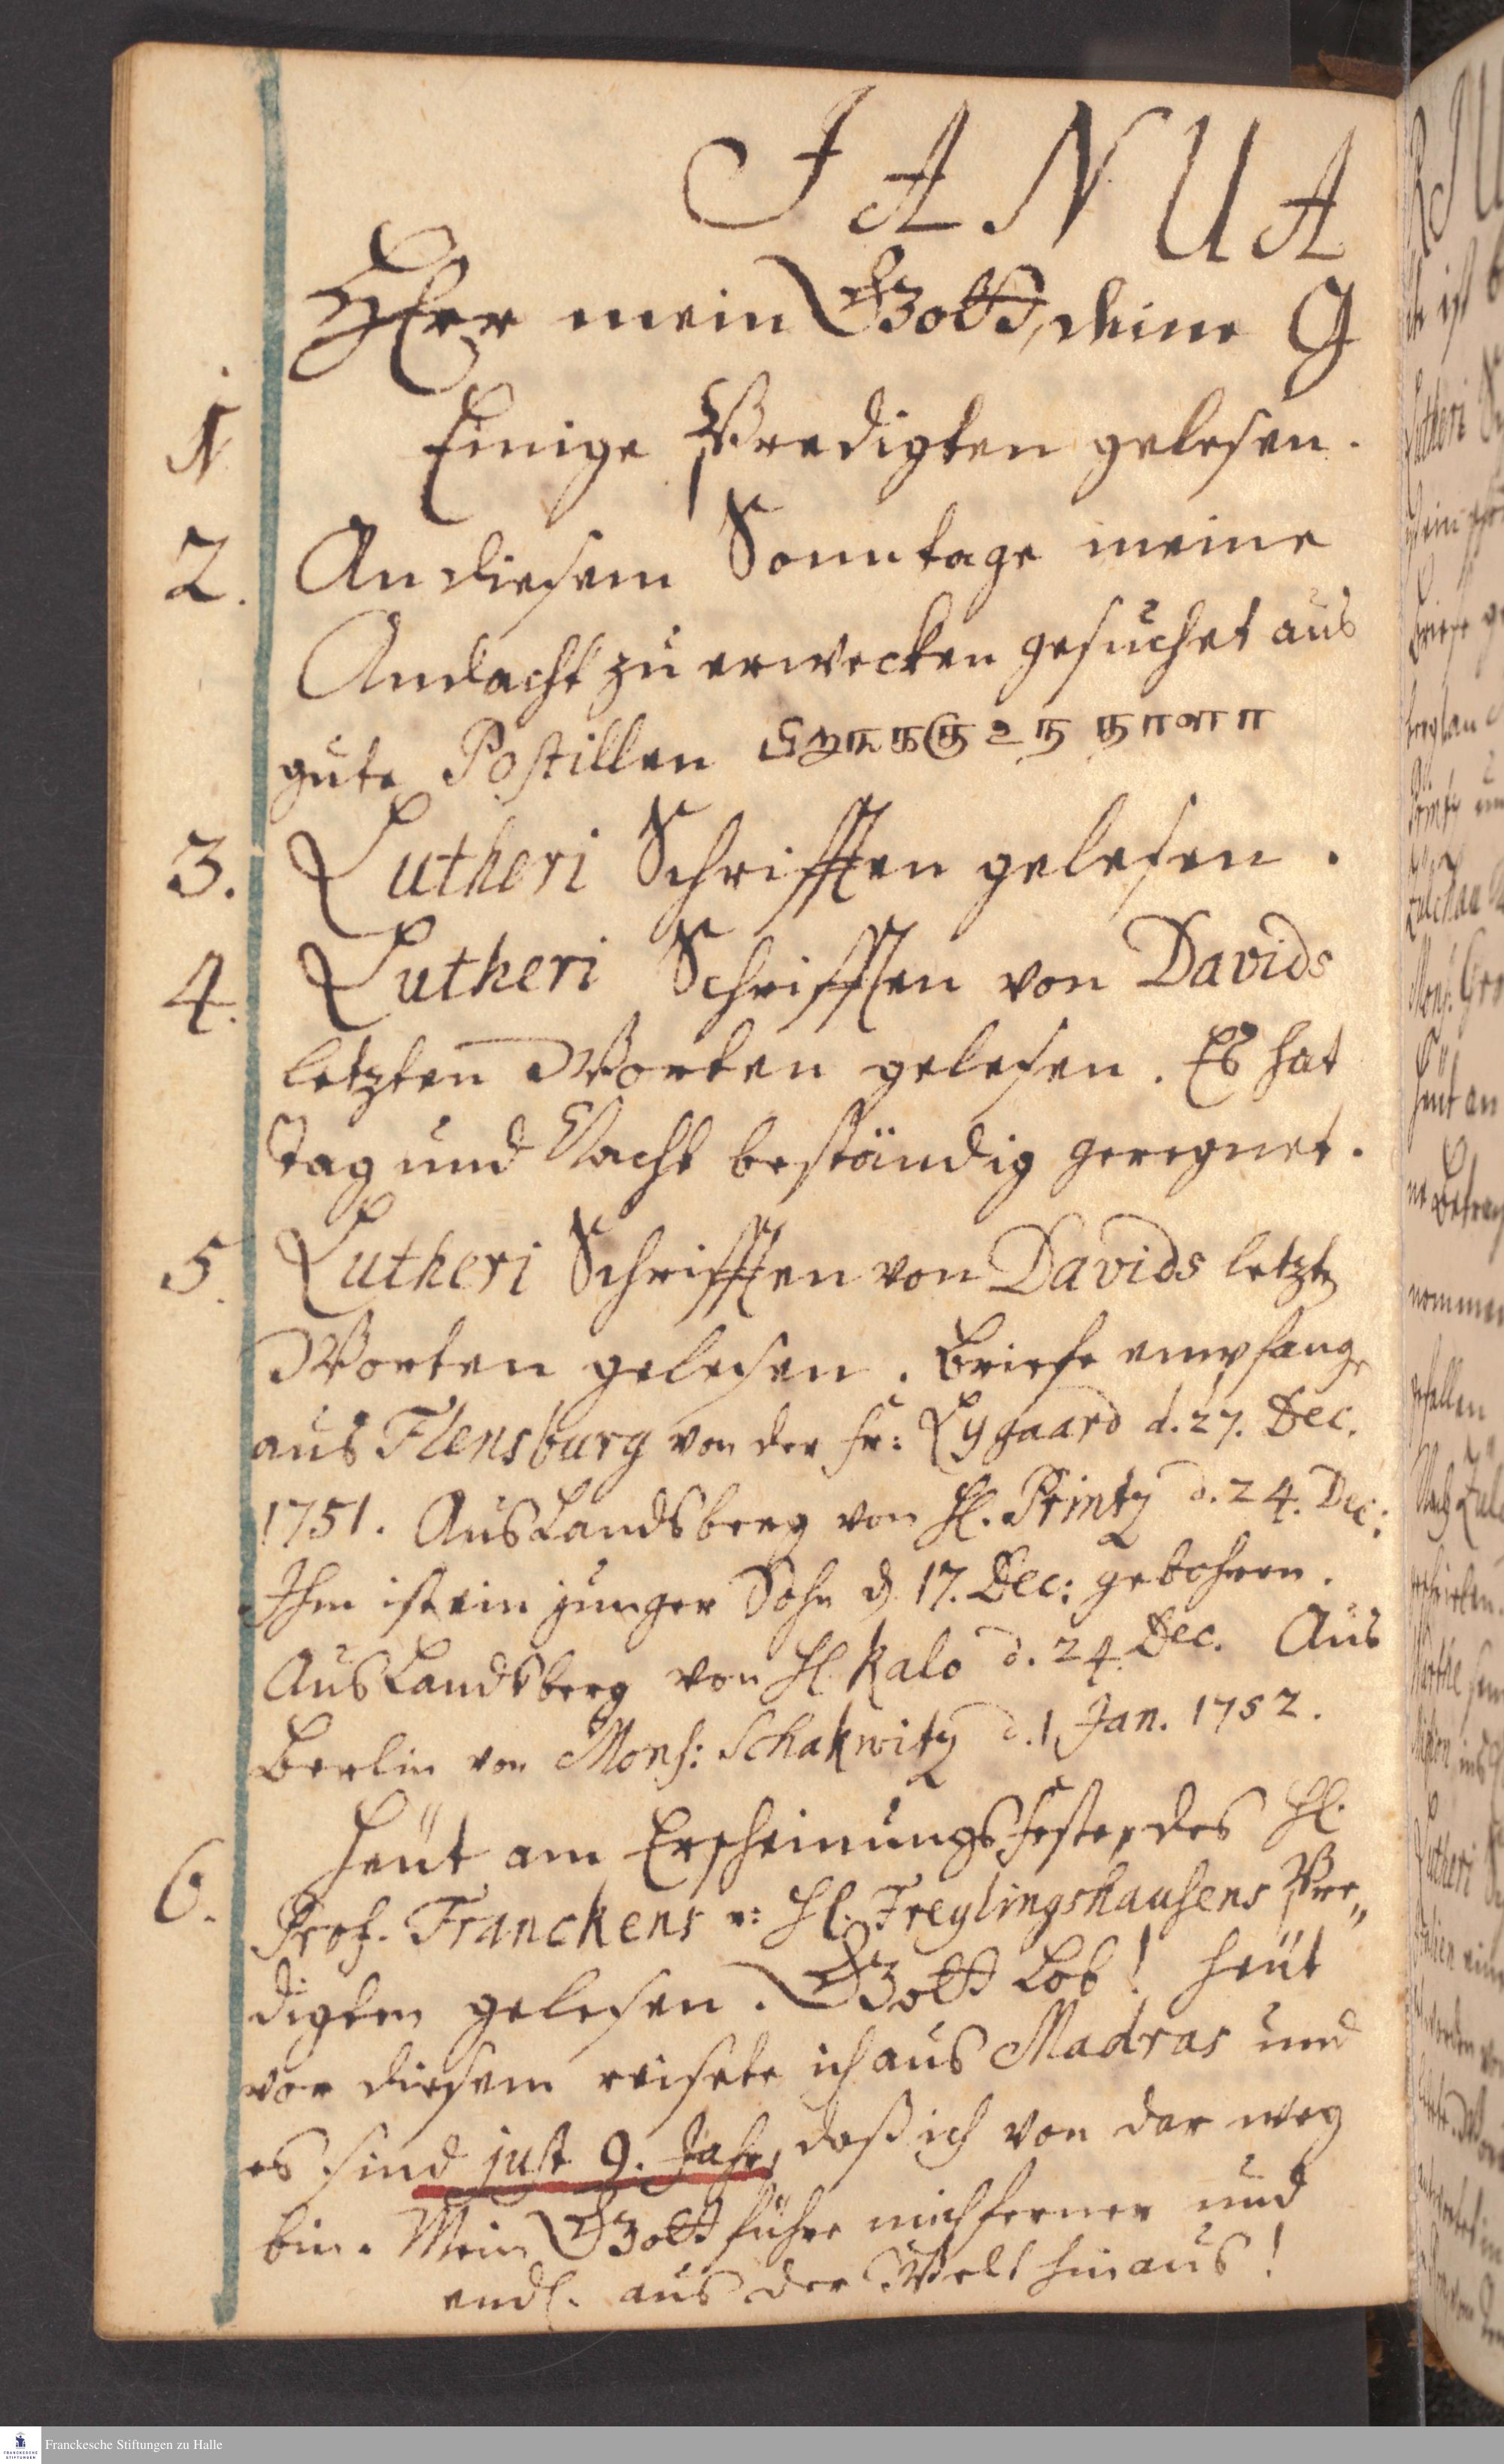 JANUA
HErr mein GOtt, deine G
1 Einige Predigten gelesen.
2. An diesem Sonntage meine
Andacht zu erwecken gesuchet aus
gute Postillen
3. Lutheri Schrifften gelesen.
4. Lutheri Schrifften von Davids
letzten Worten gelesen. Es hat
Tag und Nacht beständig geregnet.
5. Lutheri Schrifften von Davids letzte
Worten gelesen. Briefe empfange
aus Flensburg von der Fr: Lygaard d. 27. Dec.
1751. Aus Landsberg von H. Printz d. 24. Dec:
Ihm ist ein junger Sohn d. 17. Dec: gebohren.
Aus Landsberg von H. Kalo d. 24. Dec. Aus
Berlin von Mons: Schakwitz d. 1. Jan. 1752.
6. Heüt am Erscheinungs Feste, des H.
Prof. Franckens u: H. Freylingshausens Pre„
digten gelesen. GOtt Lob! heüt
vor diesem reisete ich aus Madras und
es sind just 9. Jahr, daß ich von dar weg
bin. Mein GOtt führe mich ferner und
endl. aus der Welt hinaus!
Franckesche Stiftungen zu Halle